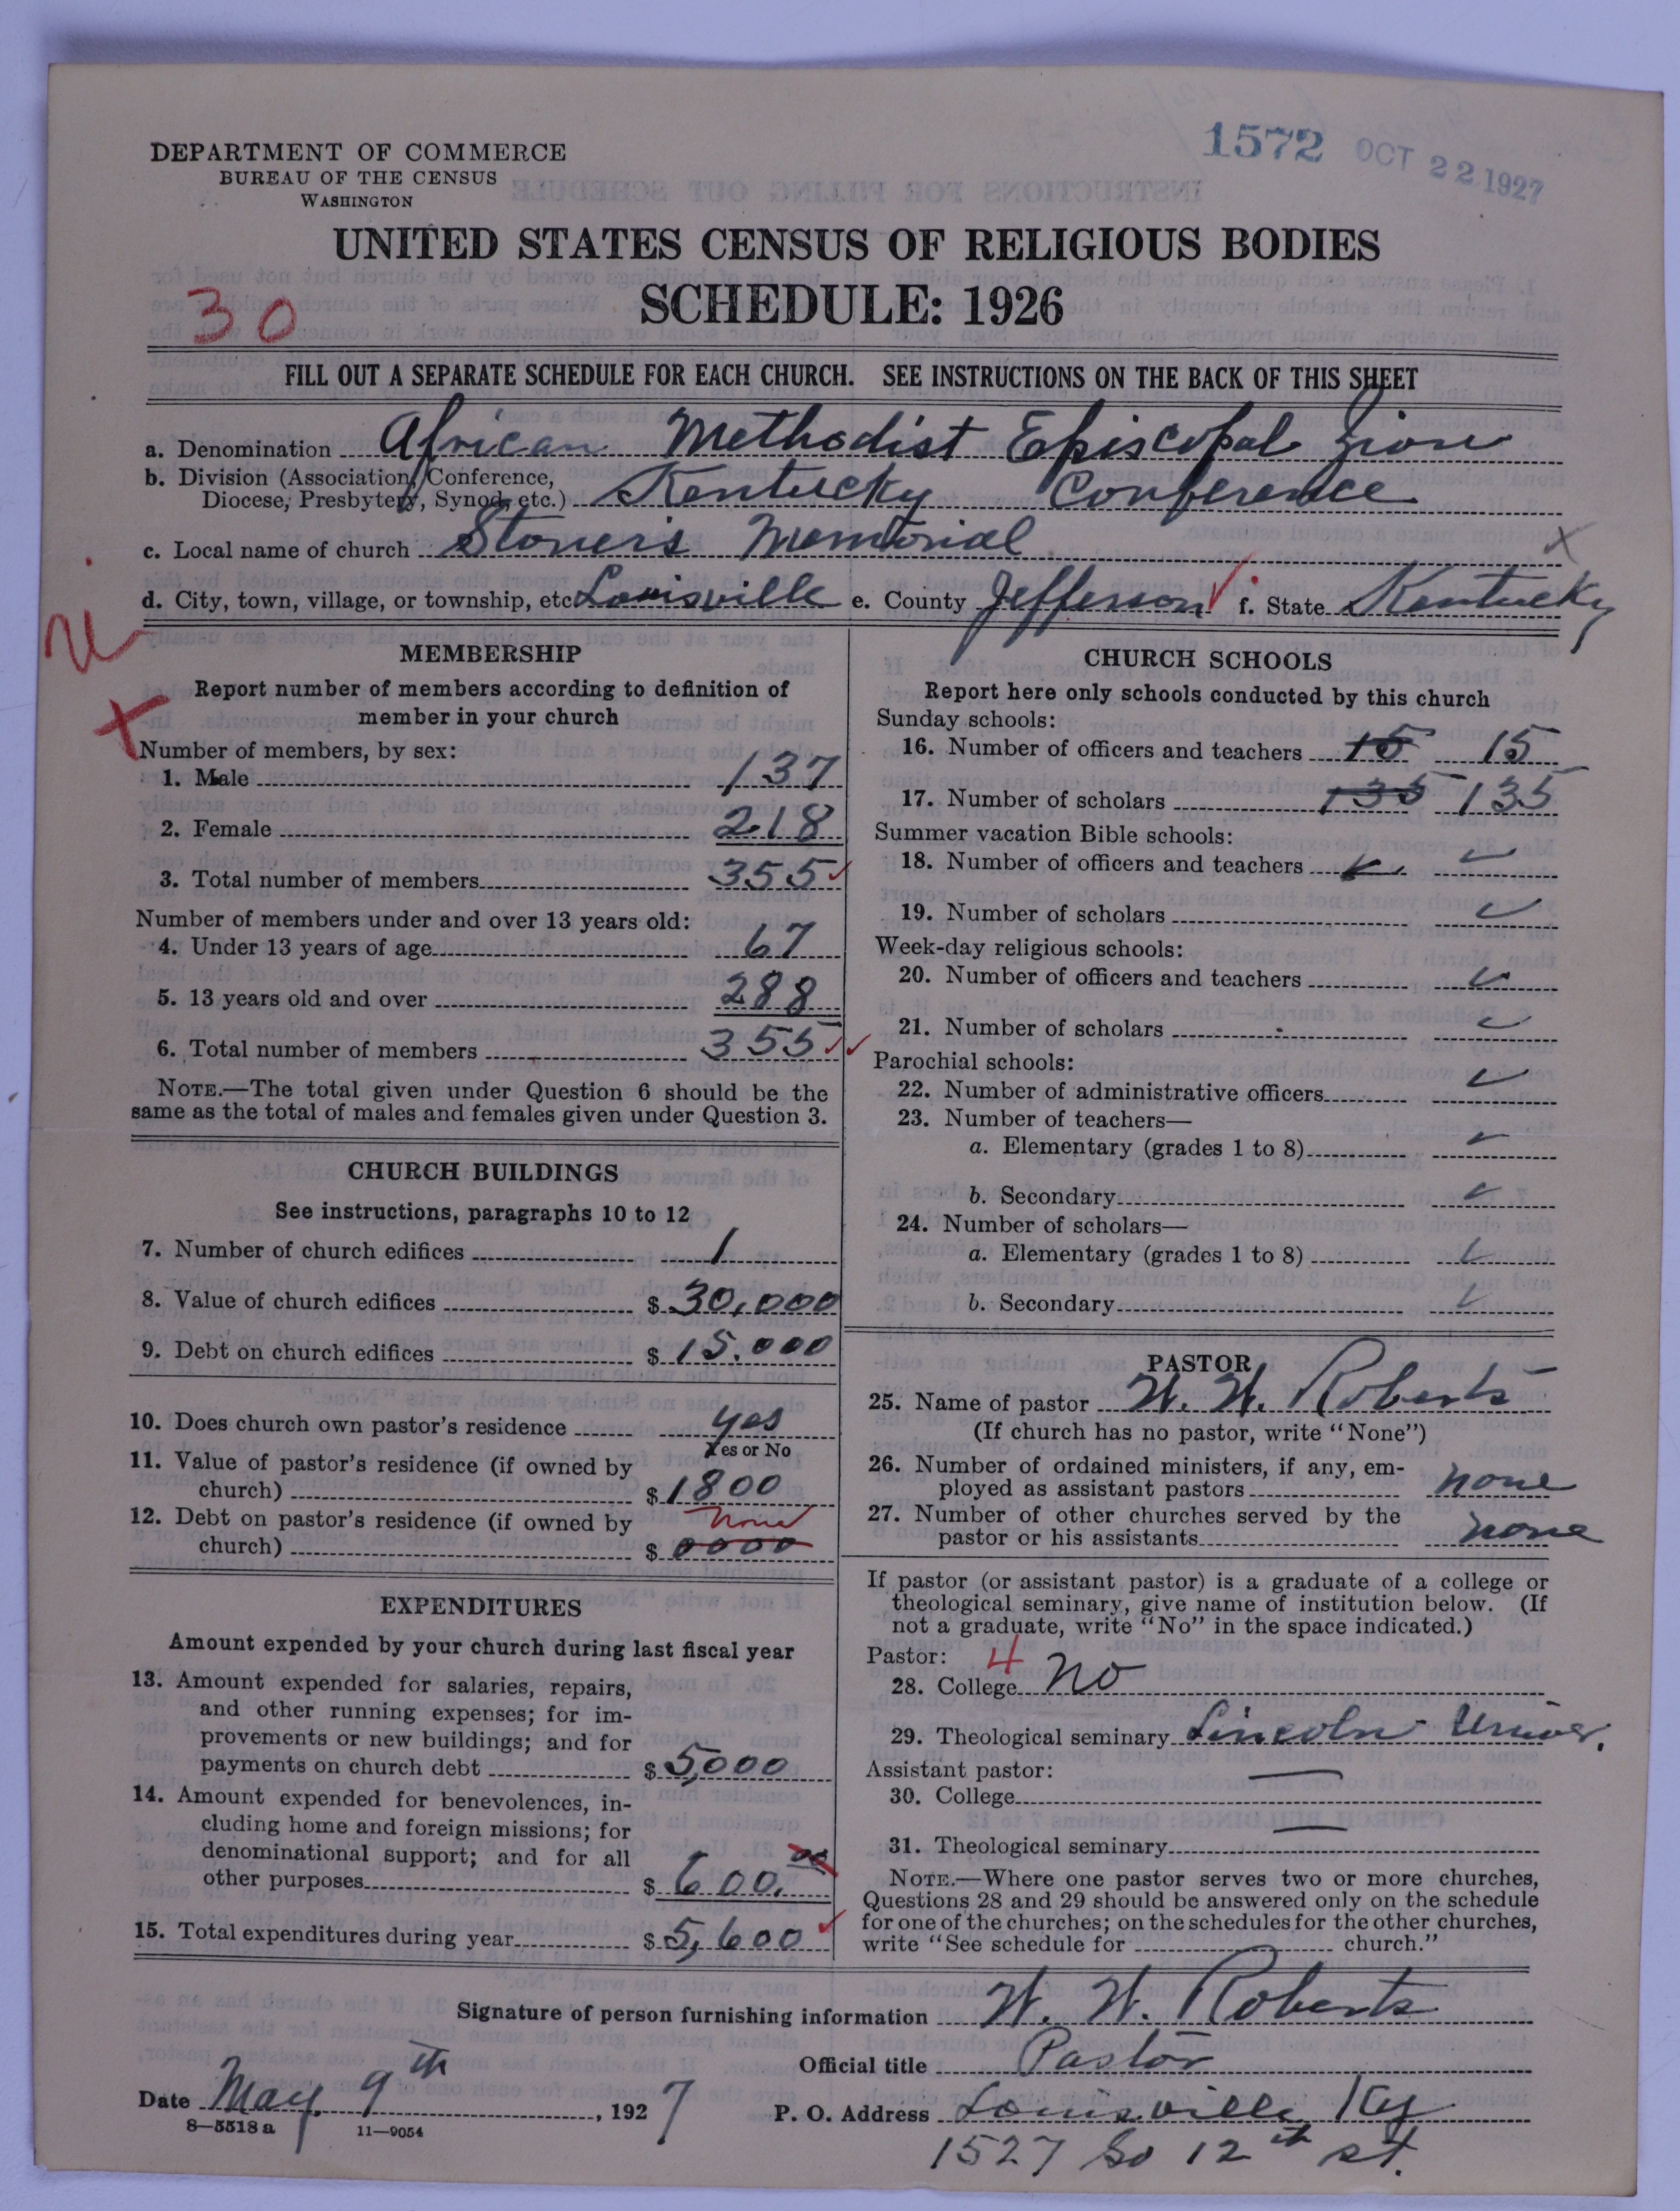 DEPARTMENT OF COMMERCE
BUREAU OF THE CENSUS
WASHINGTON
1572 OCT 22 1927
UNITED STATES CENSUS OF RELIGIOUS BODIES
SCHEDULE: 1926
30
FILL OUT A SEPARATE SCHEDULE FOR EACH CHURCH. SEE INSTRUCTIONS ON THE BACK OF THIS SHEET
a. Denomination African Methodist Episcopal Zion
b. Division (Association, Conference,
Diocese, Presbytery, Synod, etc.) Kentucky Conference
c. Local name of church Stoner's Memorial
d. City, town, village, or township, etc. Louisville e. County Jefferson f. State Kentucky
MEMBERSHIP
Report number of members according to definition of
member in your church
Number of members, by sex:
1. Male 137
2. Female 218
3. Total number of members 355
Number of members under and over 13 years old:
4. Under 13 years of age 67
5. 13 years old and over 288
6. Total number of members 355
NOTE.—The total given under Question 6 should be the
same as the total of males and females given under Question 3.
CHURCH BUILDINGS
See instructions, paragraphs 10 to 12
7. Number of church edifices 1
8. Value of church edifices $ 30,000
9. Debt on church edifices $ 15.000
10. Does church own pastor's residence yes
Yes or No
11. Value of pastor's residence (if owned by
church) $ 1800
12. Debt on pastor's residence (if owned by none
church) $ 0000
EXPENDITURES
Amount expended by your church during last fiscal year
13. Amount expended for salaries, repairs,
and other running expenses; for im-
provements or new buildings; and for
payments on church debt $ 5,000
14. Amount expended for benevolences, in-
cluding home and foreign missions; for
denominational support; and for all
other purposes $ 600.00
15. Total expenditures during year $ 5,600
CHURCH SCHOOLS
Report here only schools conducted by this church
Sunday schools:
16. Number of officers and teachers 15 15
17. Number of scholars 135 135
Summer vacation Bible schools:
18. Number of officers and teachers
19. Number of scholars
Week-day religious schools:
20. Number of officers and teachers
21. Number of scholars
Parochial schools:
22. Number of administrative officers
23. Number of teachers—
a. Elementary (grades 1 to 8)
b. Secondary
24. Number of scholars—
a. Elementary (grades 1 to 8)
b. Secondary
PASTOR
25. Name of pastor W. W. Roberts
(If church has no pastor, write "None")
26. Number of ordained ministers, if any, em-
ployed as assistant pastors none
27. Number of other churches served by the
pastor or his assistants none
If pastor (or assistant pastor) is a graduate of a college or
theological seminary, give name of institution below. (If
not a graduate, write "No" in the space indicated.)
Pastor: 4
28. College No
29. Theological seminary Lincoln Univer.
Assistant pastor:
30. College
31. Theological seminary
NOTE.—Where one pastor serves two or more churches,
Questions 28 and 29 should be answered only on the schedule
for one of the churches; on the schedules for the other churches,
write "See schedule for church."
Signature of person furnishing information W. W. Roberts
Official title Pastor
Date May 9th, 1927
P. O. Address Louisville, Ky
1527 So 12th st.
8—5518 a 11—9054